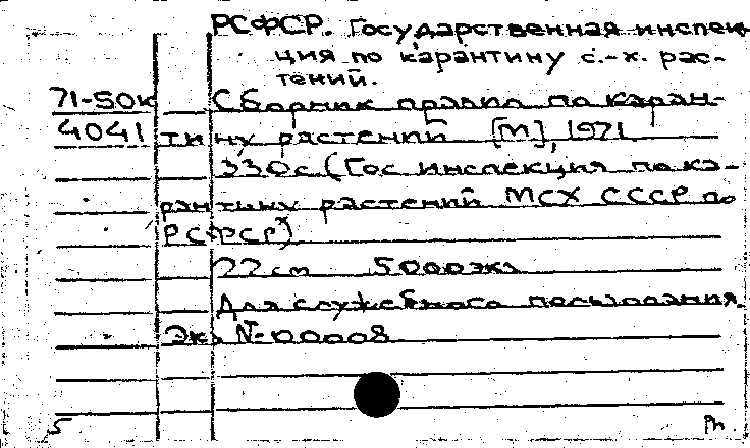 РСФСР. Государственная инспек-
ция по карантину с.-х. рас-
тений.
71-50к Сборник правил по каран-
4041 тину растений [М], 1971
330с (Гос инспекция по ка-
рантину растений МСХ СССР по
РСФСР).
22 cm 5000экз
Для служебного пользования.
Экз №-00008
5